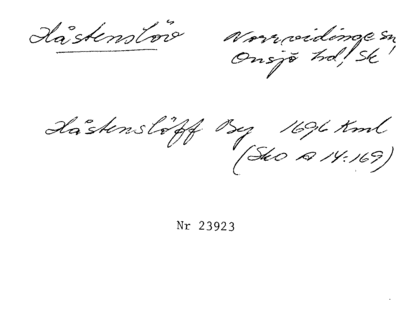 Håstenslöv Norrvidinge sn
Onsjö hd, Sk
Håstenslöff By 1696 Kml
(Sko A 14:169)
Nr 23923